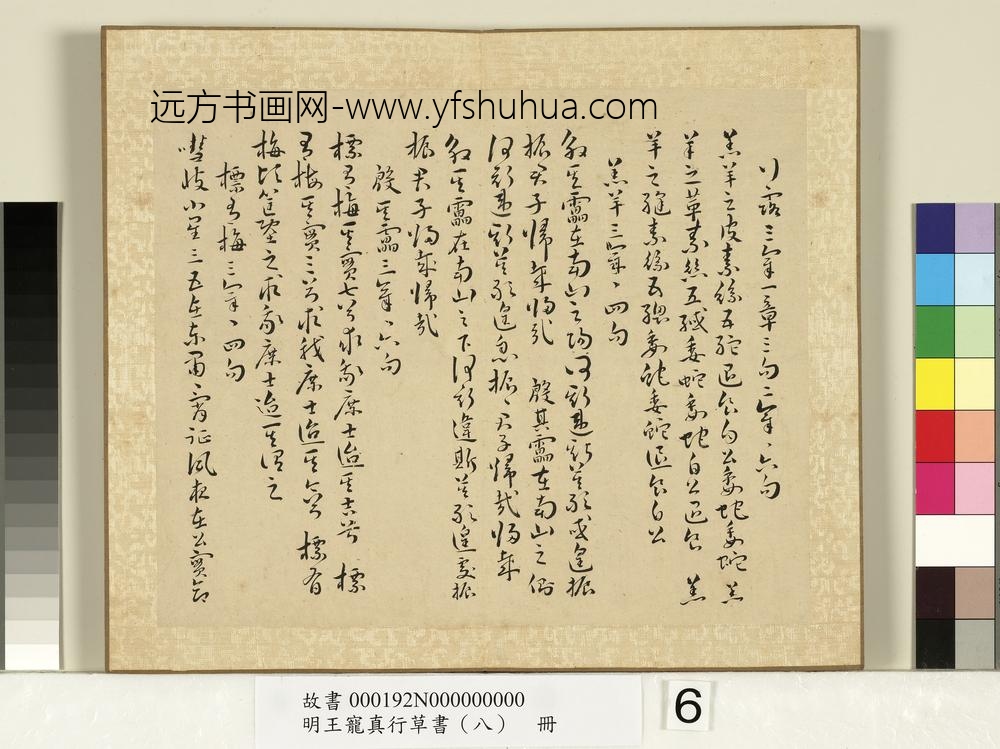 远方书画网-www.yfshuhua.com
行露三章一章三句二章〻六句
羔羊之皮素絲五紽退食自公委蛇委蛇 羔
羊之革素絲五緎委蛇委蛇自公退食 羔
羊之縫素絲五總委蛇委蛇退食自公
羔羊三章〻四句
殷其靁在南山之陽何斯違斯莫敢或遑振
振君子歸哉歸哉 殷其靁在南山之側
何斯違斯莫敢遑息振〻君子歸哉歸哉
殷其靁在南山之下何斯違斯莫敢遑處振
振君子歸哉歸哉
殷其靁三章〻六句
標有梅其實七兮求我庶士迨其吉兮 標
有梅其實三兮求我庶士迨其今兮 標有
梅頃筐塈之求我庶士迨其謂之
標有梅三章〻四句
嘒彼小星三五在東肅〻宵征夙夜在公寔命
故書 000192N000000000
明王寵真行草書（八） 冊
6